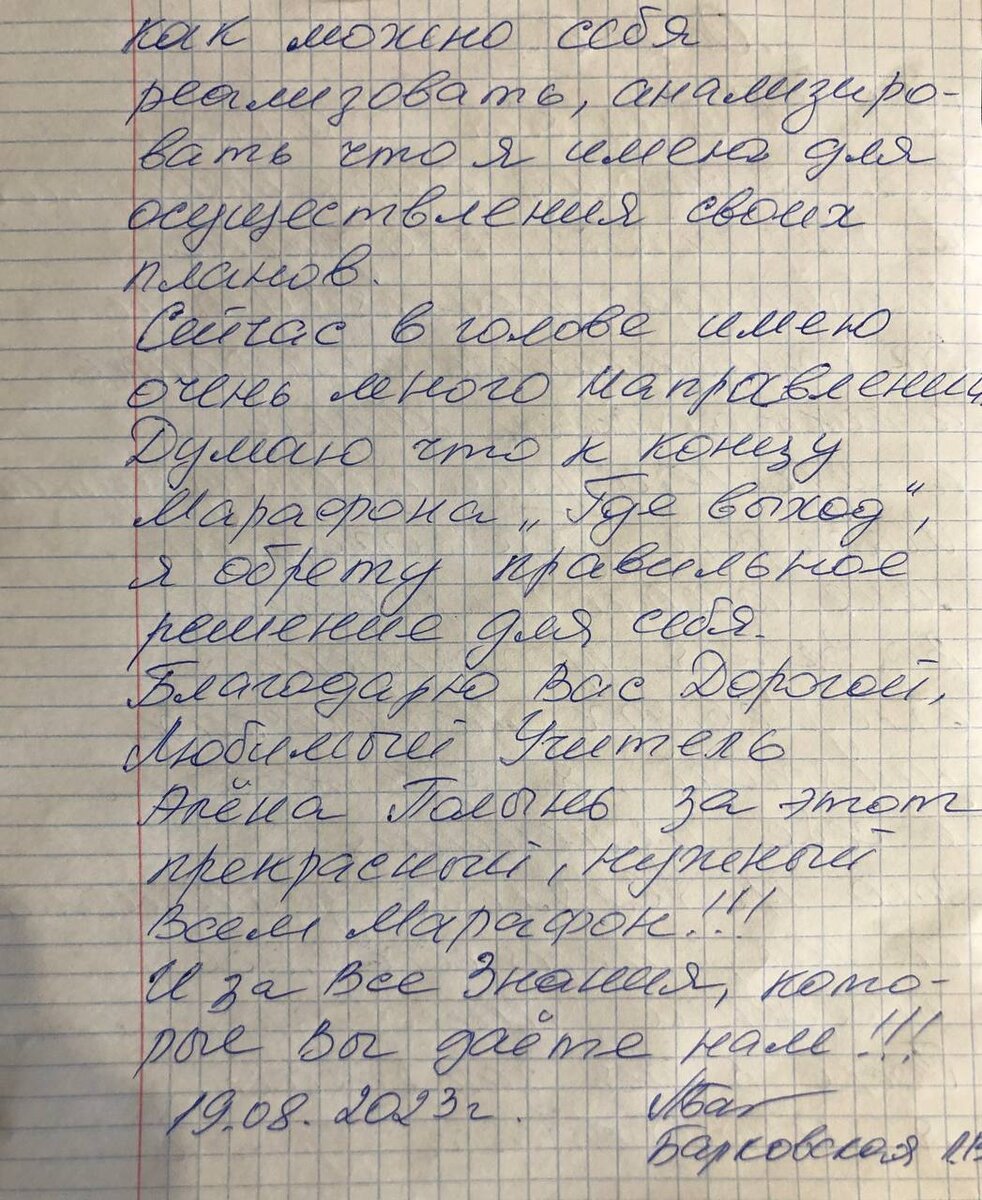 как можно себя
реализовать, анализиро-
вать что я имею для
осуществления своих
планов.
Сейчас в голове имею
очень много направлений.
Думаю что к концу
Марафона „Где выход“,
я обрету правильное
решение для себя.
Благодарю Вас Дорогой,
Любимый Учитель
Алёна Полынь за этот
прекрасный, нужный
Всем Марафон!!!
И за Все Знания, кото-
рые Вы даёте нам!!!
19.08.2023г.
Барковская